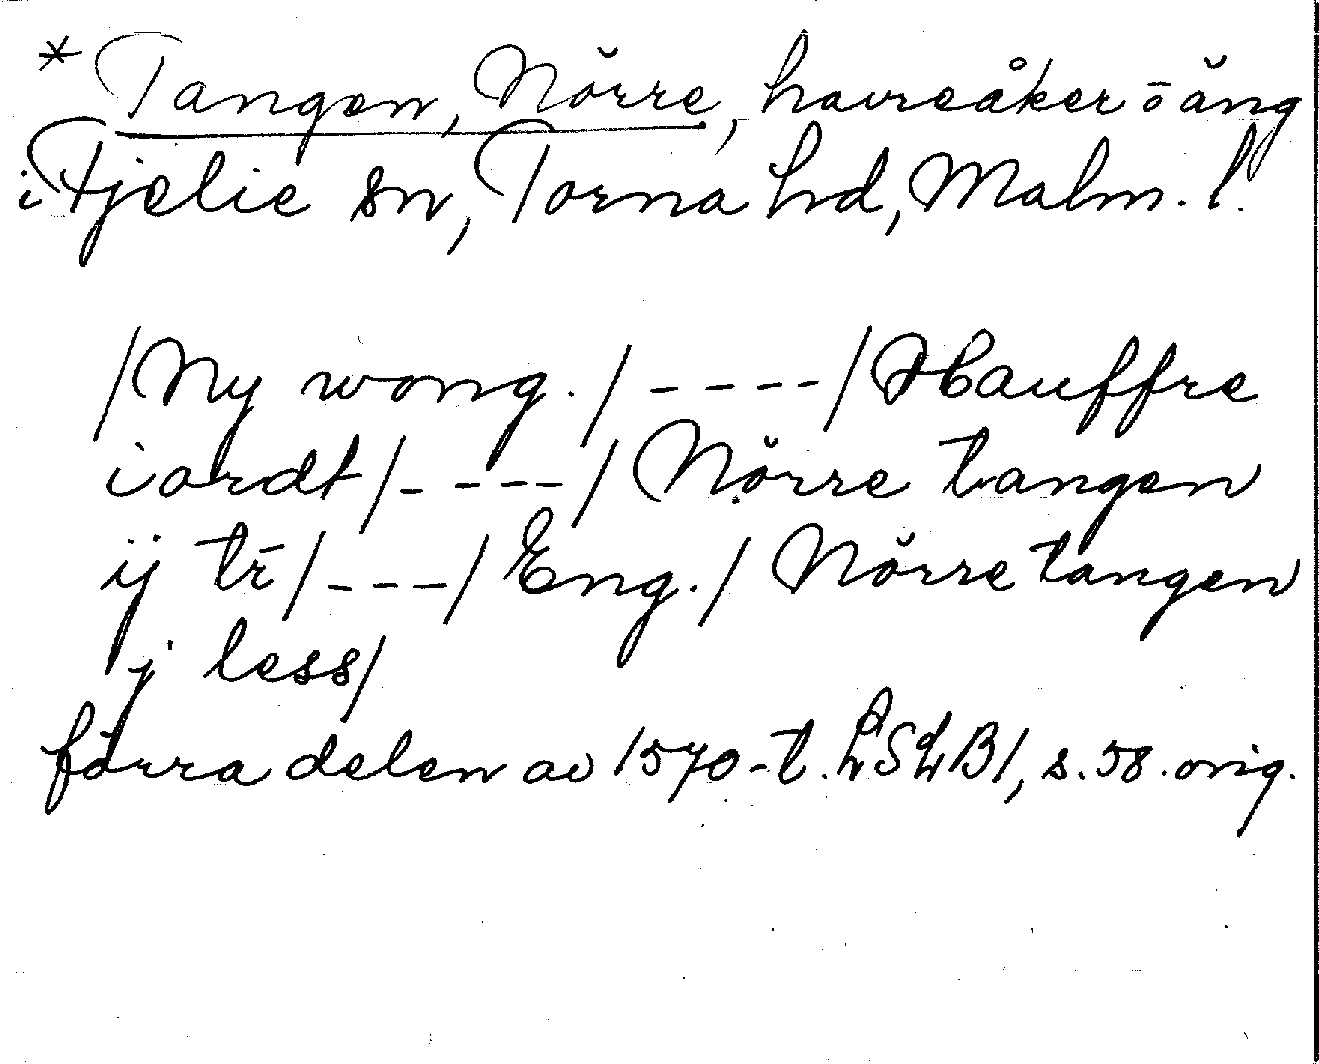 * Tangen, Nörre, havreåker o äng
i Fjelie sn, Torna hd, Malm. l.
/Ny wong./----/Hauffre
iordt/----/Nörre tangen
ij tr̄/---/Eng./Nörre tangen
j less/
förra delen av 1570-t. LSLB1, s. 58. orig.